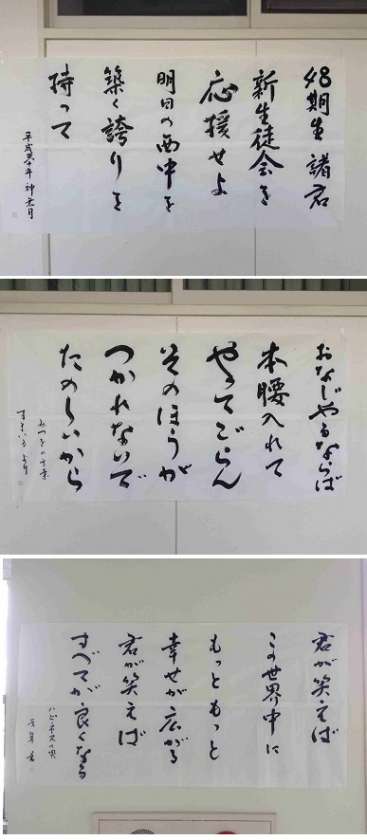 48期生諸君
新生徒会を
応援せよ
明日の西中を
築く誇りを
持って
おなじやるならば
本腰入れて
やってごらん
そのほうが
つかれないで
たのしいから
君が笑えば
この世界中に
もっともっと
幸せが広がる
君が笑えば
すべてが良くなる